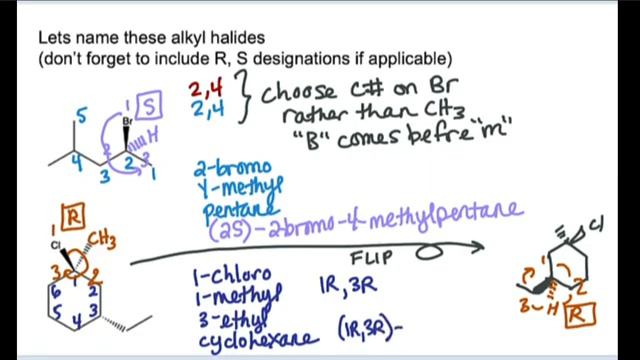 Lets name these alkyl halides
(don't forget to include R, S designations if applicable)
2,4
2,4
choose C# on Br
rather than CH3
"B" comes befre "m"
5
1
S
Br
H
2
3
4
3
2
1
2-bromo
4-methyl
pentane
(2S)-2bromo-4-methylpentane
R
1
Cl
CH3
3
2
1
6
2
5
3
4
FLIP
1-chloro
1-methyl
3-ethyl
cyclohexane
1R, 3R
(1R,3R)-
Cl
1
2
3
H
R